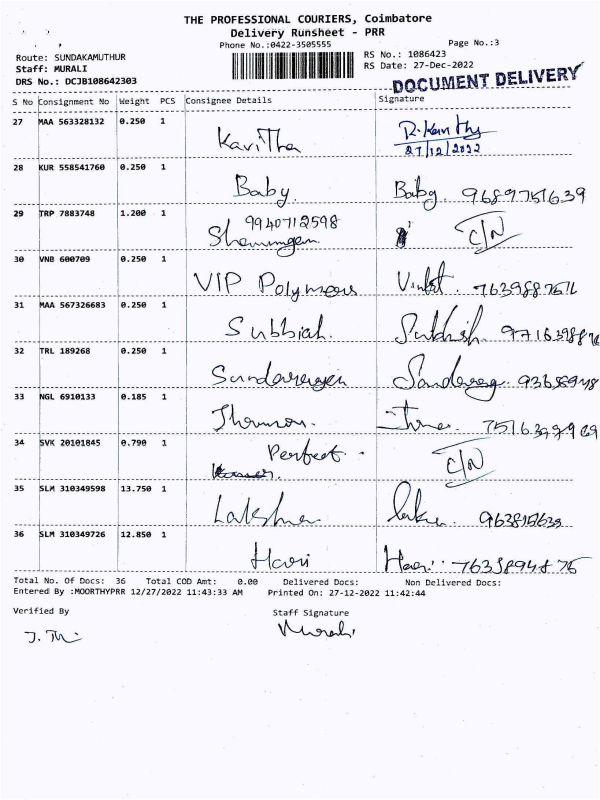 THE PROFESSIONAL COURIERS, Coimbatore
Delivery Runsheet - PRR
Phone No.:0422-3505555
Page No.:3
Route: SUNDAKAMUTHUR
RS No.: 1086423
Staff: MURALI
RS Date: 27-Dec-2022
DRS No.: DCJB108642303
DOCUMENT DELIVERY
S No Consignment No Weight PCS Consignee Details Signature
27 MAA 563328132 0.250 1 Kavitha R. Kavitha
27/12/2022
28 KUR 558541760 0.250 1 Baby. Baby. 9689751639
29 TRP 7883748 1.200 1 9940712598
C/N
30 VNB 600709 0.250 1 VIP Polymers
31 MAA 567326683 0.250 1 Subbiah.
32 TRL 189268 0.250 1
33 NGL 6910133 0.185 1
34 SVK 20101845 0.790 1 Perfect. C/N
35 SLM 310349598 13.750 1
36 SLM 310349726 12.850 1 Hari
Total No. Of Docs: 36 Total COD Amt: 0.00 Delivered Docs: Non Delivered Docs:
Entered By :MOORTHYPRR 12/27/2022 11:43:33 AM Printed On: 27-12-2022 11:42:44
Verified By Staff Signature
Murali